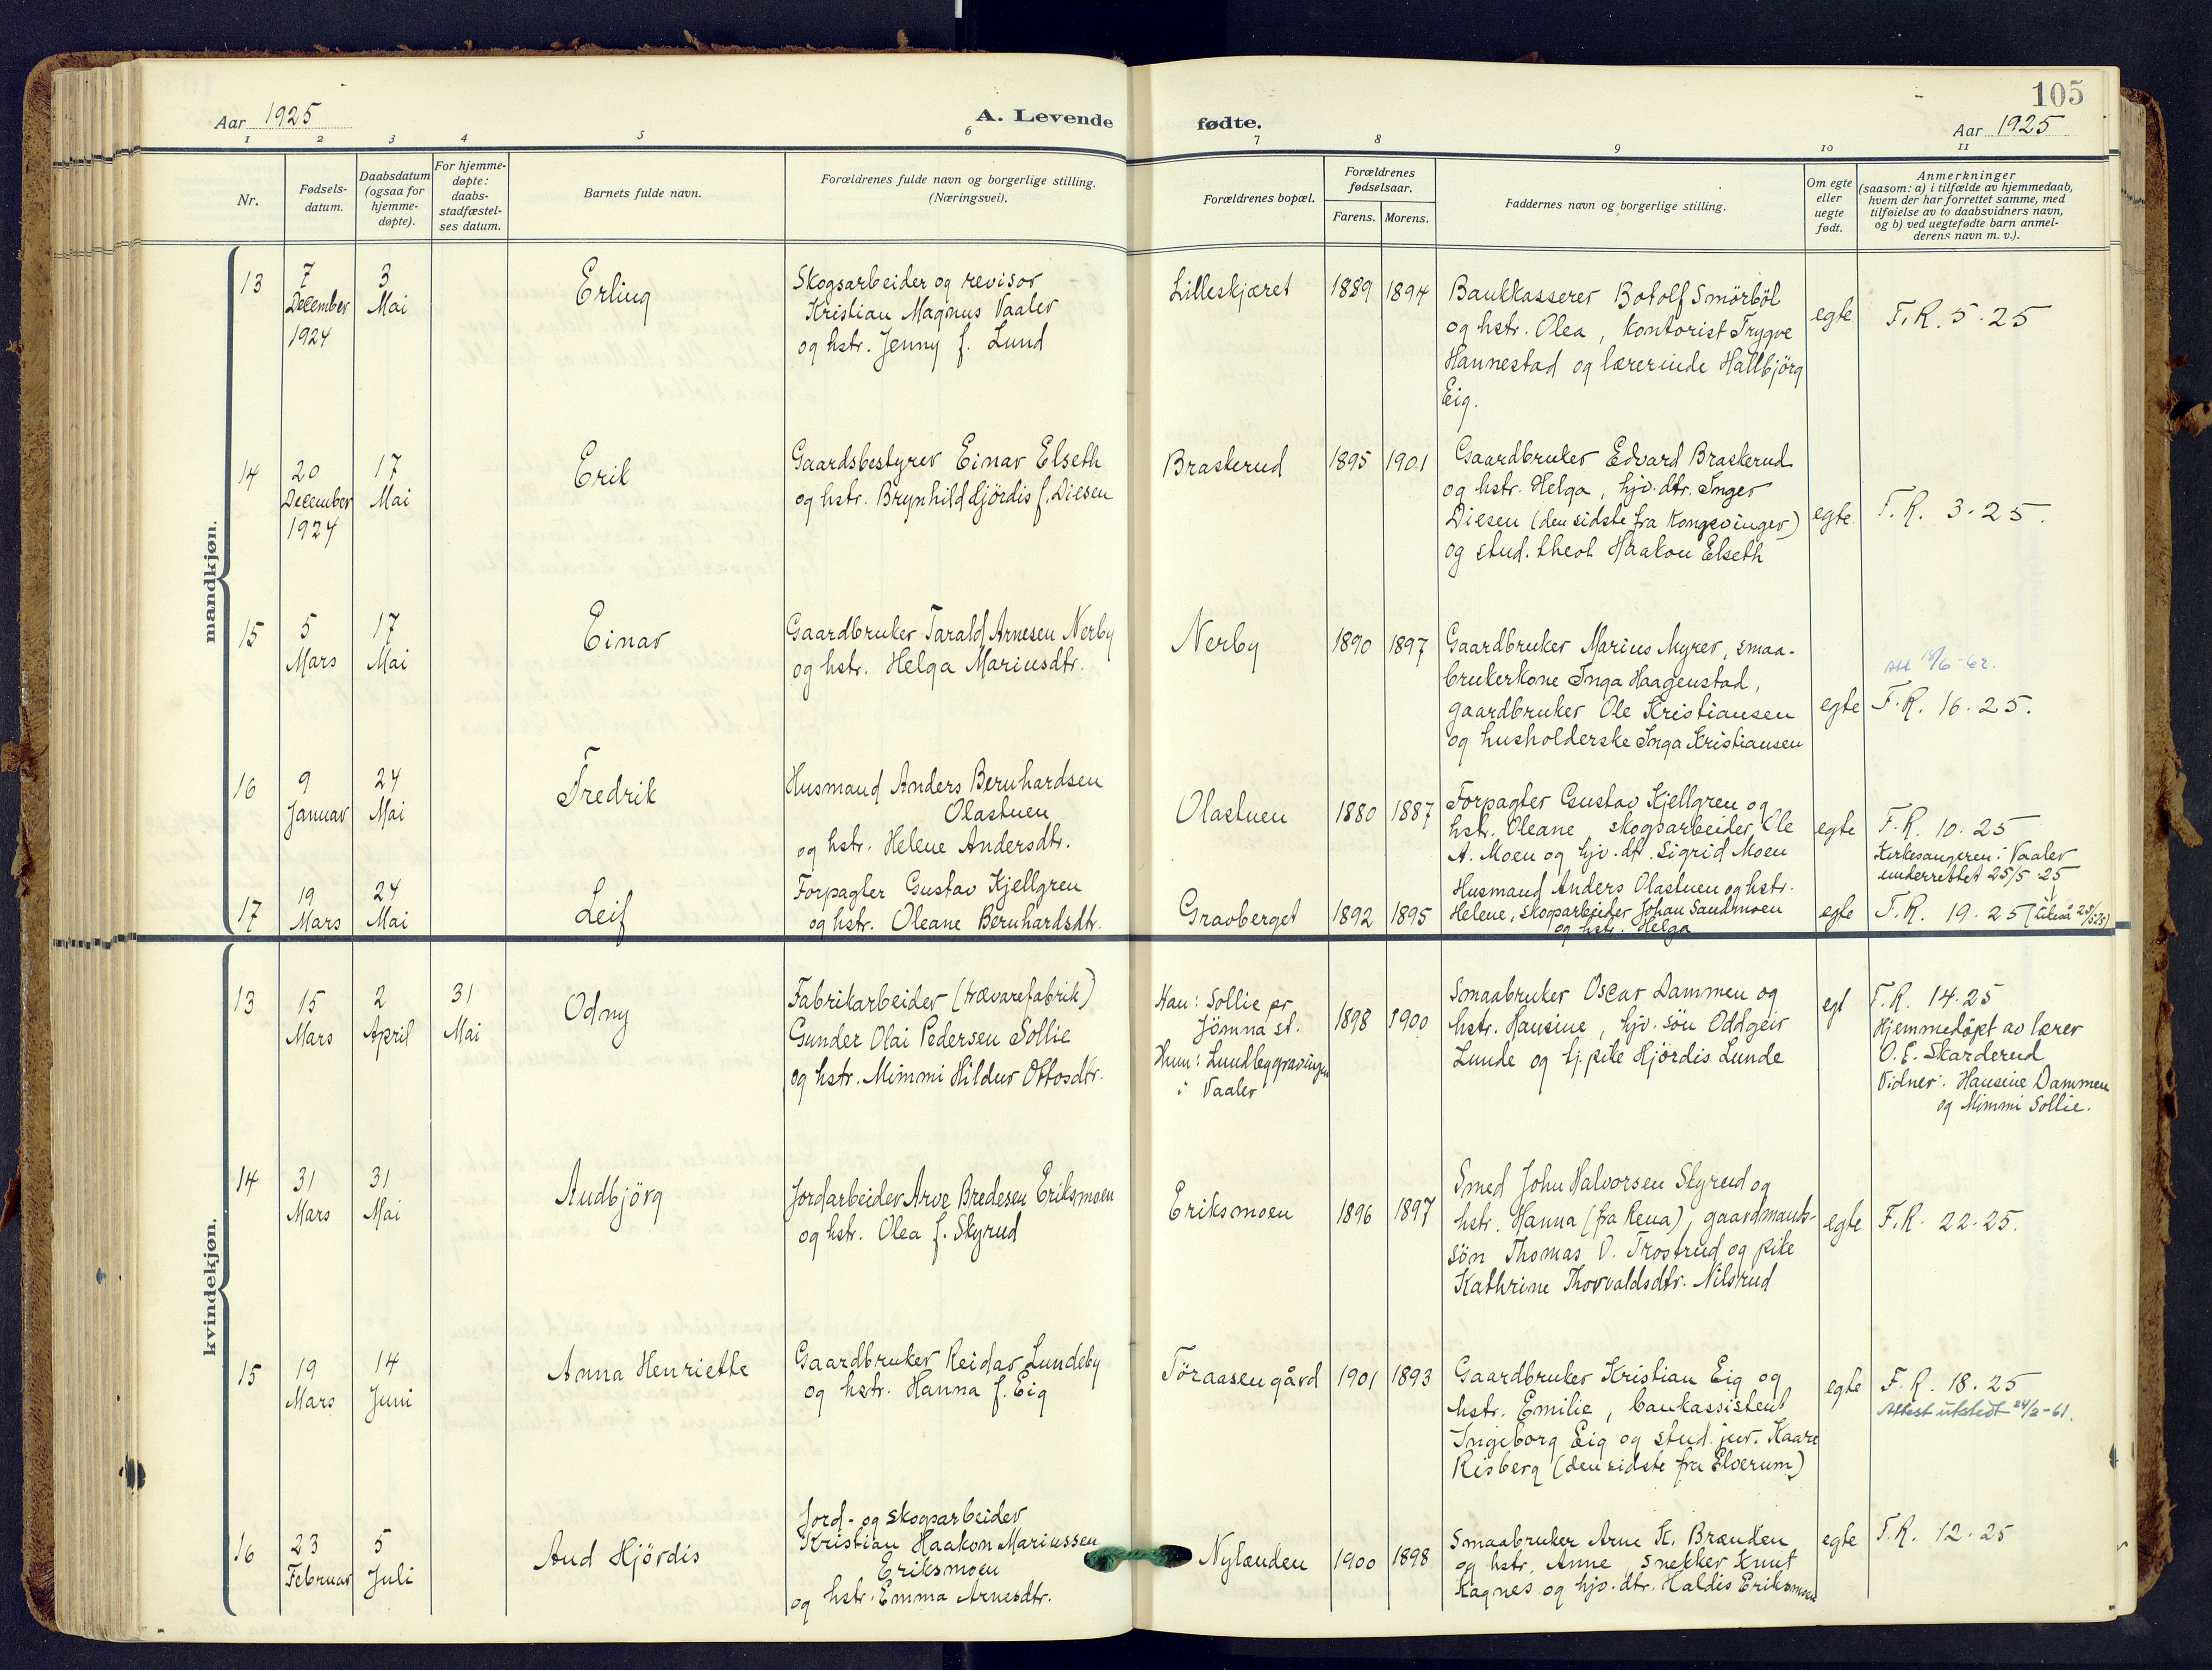 105
Aar 1925
A. Levende fødte.
Aar 1925
1 2 3 4 5 6 7 8 9 10 11
Nr.
Fødsels-
datum.
Daabsdatum
(ogsaa for
hjemme-
døpte).
For hjemme-
døpte:
daabs-
stadfæstel-
ses datum.
Barnets fulde navn.
Forældrenes fulde navn og borgerlige stilling.
(Næringsvei).
Forældrenes bopæl.
Forældrenes
fødselsaar.
Farens. Morens.
Faddernes navn og borgerlige stilling.
Om egte
eller
uegte
født.
Anmerkninger
(saasom: a) i tilfælde av hjemmedaab,
hvem der har forrettet samme, med
tilføielse av to daabsvidners navn,
og b) ved uegtefødte barn anmel-
derens navn m. v.).
mandkjøn.
13
7
December
1924
3
Mai
Erling
Skogsarbeider og revisor
Kristian Magnus Vaaler
og hstr. Jenny f. Lund
Lilleskjæret
1889
1894
Bankkasserer Botolf Smörböl
og hstr. Olea, kontorist Trygve
Hannestad og lærerinde Hallbjörg
Eig.
egte
F.R. 5. 25
14
20
December
1924
17
Mai
Erik
Gaardsbestyrer Einar Elseth
og hstr. Brynhild Hjördis f. Diesen
Braskerud
1895
1901
Gaardbruker Edvard Braskerud
og hstr. Helga, hjv. dtr. Inger
Diesen (den sidste fra Kongsvinger)
og stud. theol Haakon Elseth
egte
F.R. 3. 25.
15
5
Mars
17
Mai
Einar
Gaardbruker Tarald Arnesen Nerby
og hstr. Helga Mariusdtr.
Nerby
1890
1897
Gaardbruker Marius Myrer, smaa-
brukerkone Inga Haagenstad,
gaardbruker Ole Kristiansen
og husholderske Inga Kristiansen
egte
F.R. 16. 25.
16
9
Januar
24
Mai
Fredrik
Husmand Anders Bernhardsen
Olastuen
og hstr. Helene Andersdtr.
Olastuen
1880
1887
Forpagter Gustav Kjellgren og
hstr. Oleane, skogsarbeider Ole
A. Moen og hjv. dt. Sigrid Moen
egte
F.R. 10. 25
Kirkesangeren i Vaaler
underrettet 25/5 25
17
19
Mars
24
Mai
Leif
Forpagter Gustav Kjellgren
og hstr. Oleane Bernhardsdtr.
Gravberget
1892
1895
Husmand Anders Olastuen og hstr.
Helene, skogsarbeider Johan Sandmoen
og hstr. Helga
egte
F.R. 19. 25
kvindekjøn.
13
15
Mars
2
April
31
Mai
Odny
Fabrikarbeider (trævarefabrik)
Gunder Olai Pedersen Sollie
og hstr. Mimmi Hildur Ottosdtr.
Han: Sollie pr
Jömna st.
Hun: Lundbeggravingen
i Vaaler
1898
1900
Smaabruker Oscar Dammen og
hstr. Hansine, hjv. sön Oddgeir
Lunde og hj. pike Hjördis Lunde
egt
F.R. 14. 25
Hjemmedöpt av lærer
O. E. Skarderud
Vidner: Hansine Dammen
og Mimmi Sollie.
14
31
Mars
31
Mai
Audbjörg
Jordarbeider Arve Bredesen Eriksmoen
og hstr. Olea f. Skyrud
Eriksmoen
1896
1897
Smed John Halvorsen Skyrud og
hstr. Hanna (fra Rena), gaardmands-
sön Thomas O. Trostrud og pike
Kathrine Thorvaldsdtr. Nilsrud
egte
F.R. 22. 25.
15
19
Mars
14
Juni
Anna Henriette
Gaardbruker Reidar Lundeby
og hstr. Hanna f. Eig
Töraasen gård
1901
1893
Gaardbruker Kristian Eig og
hstr. Emilie, bankassistent
Ingeborg Eig og stud. jur. Kaare
Risberg (den sidste fra Elverum)
egte
F.R. 18. 25
Attest utstedt 24/2-61.
16
23
Februar
5
Juli
Aud Hjördis
Jord- og skogsarbeider
Kristian Haakon Mariussen
Eriksmoen
og hstr. Emma Arnesdtr.
Nylænden
1900
1898
Smaabruker Arne K. Brænden
og hstr. Anne, snekker Knut
Kagnes og hjv. dtr. Haldis Eriksmoen
egte
F.R. 12. 25